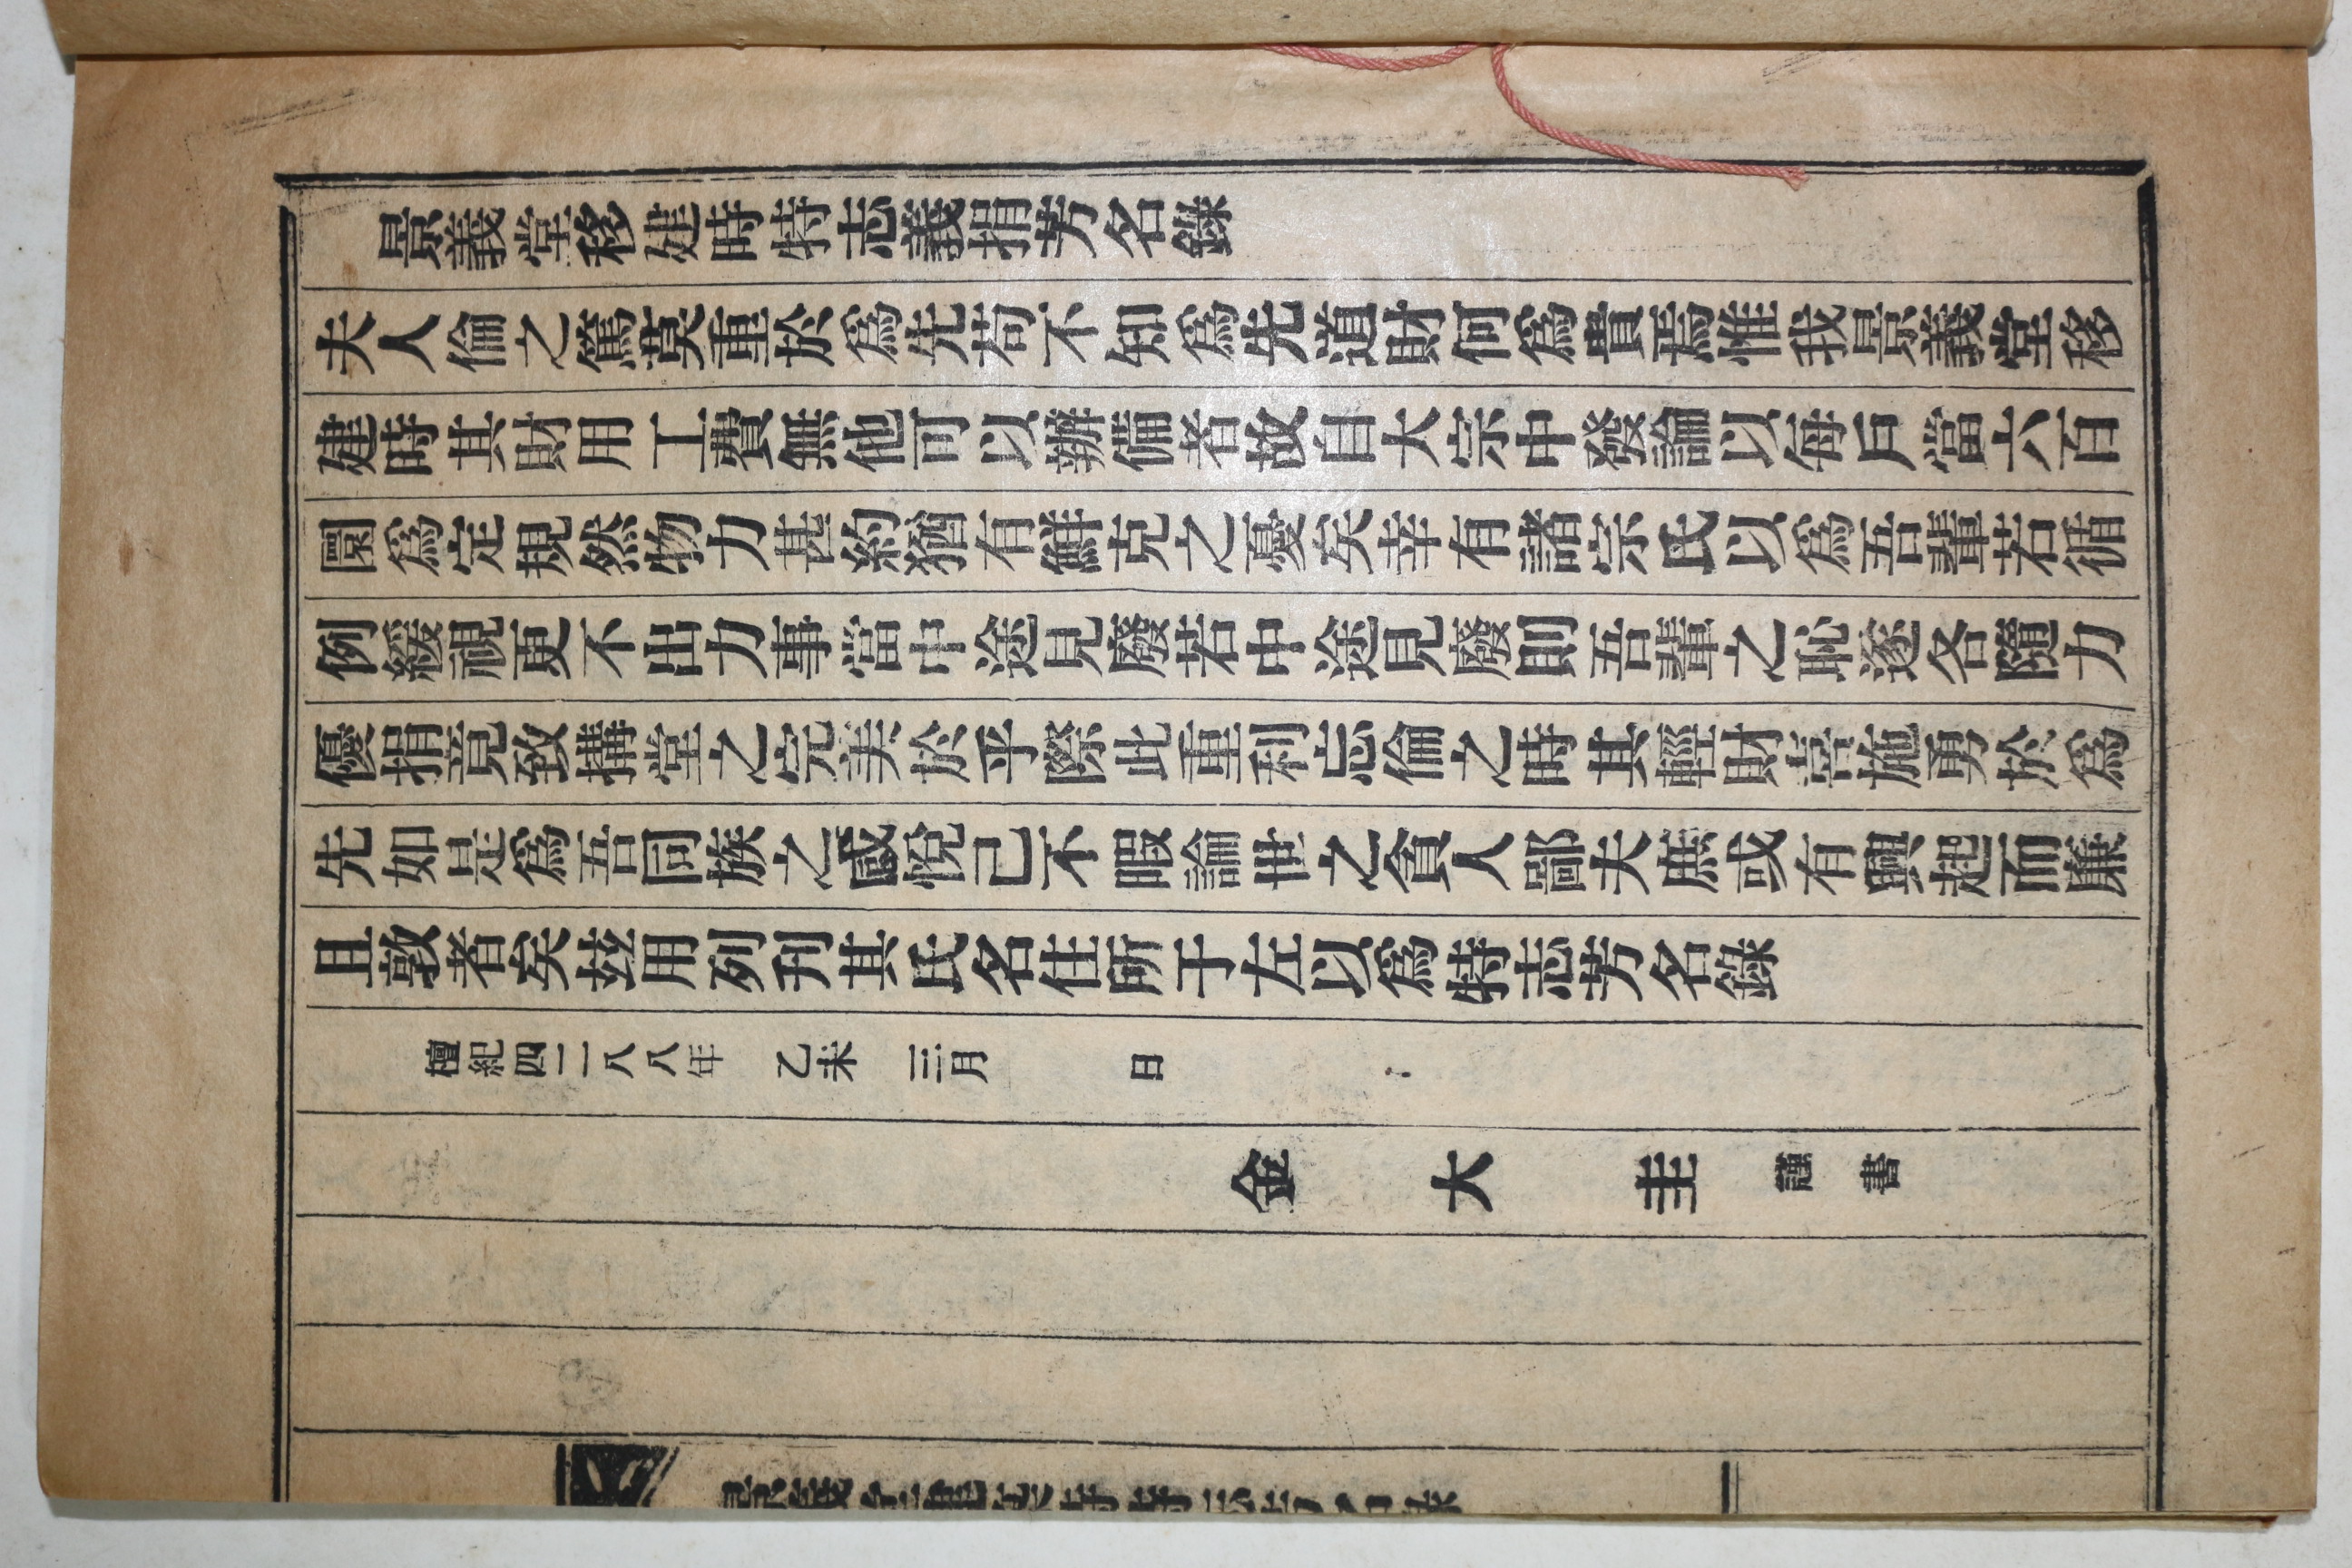 景義堂移建時特志義捐芳名錄
夫人倫之篤莫重於爲先苟不知爲先道財何爲貴焉惟我景義堂移
建時其財用工費無他可以辦備者故自大宗中發論以每戶當六百
圜爲定規然物力甚約猶有鮮克之憂矣幸有諸宗氏以爲吾輩若循
例緩視更不出力事當中途見廢若中途見廢則吾輩之恥遂各隨力
優捐竟致搆堂之完美於乎際此重利忘倫之時其輕財喜施勇於爲
先如是爲吾同族之感悅己不暇論世之貪人鄙夫庶或有興起而廉
且敦者矣玆用列刊其氏名住所于左以爲特志芳名錄
檀紀四二八八年 乙未 三月 日
金大圭 謹書